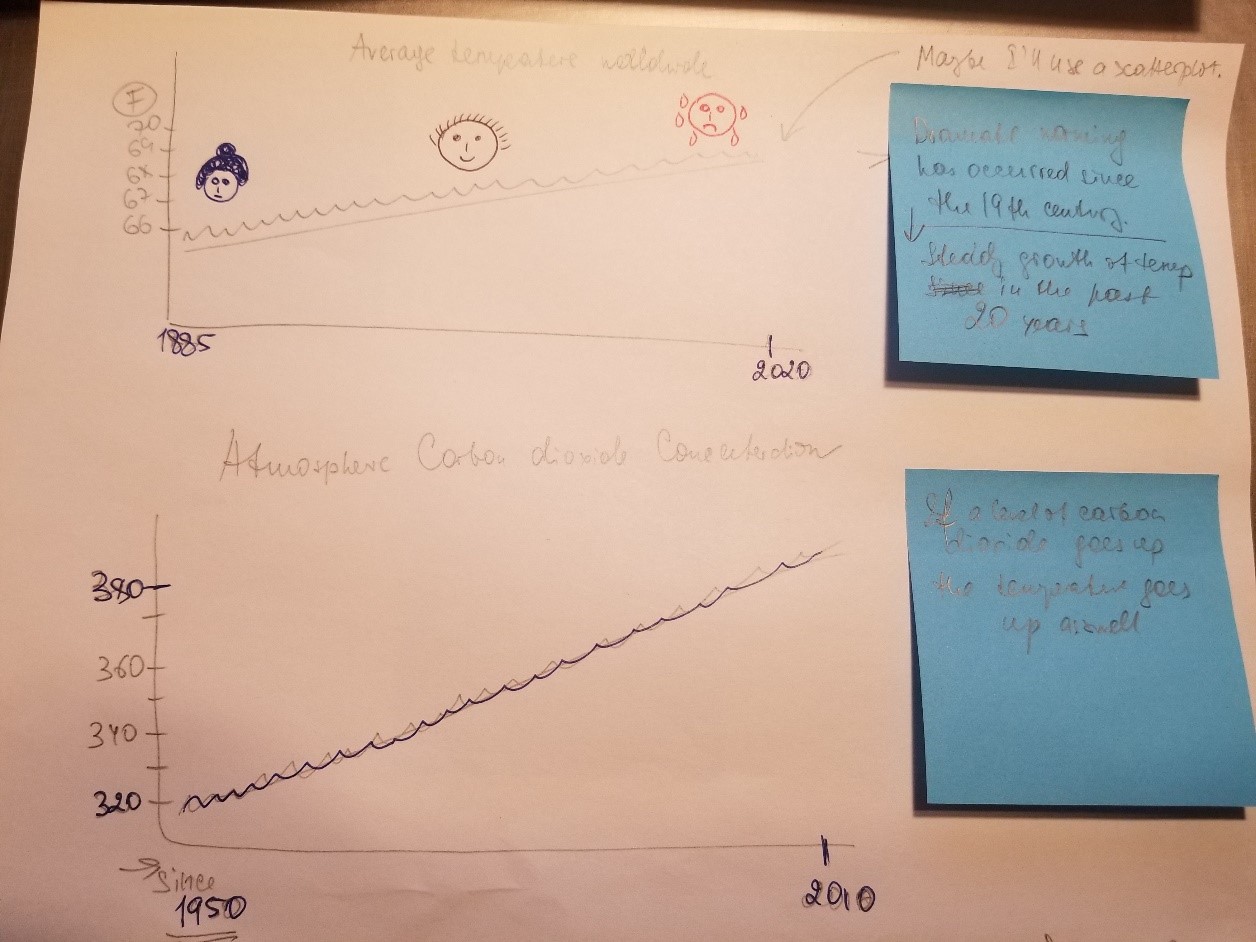 Average temperature worldwide
Maybe I'll use a scatterplot.
F
70
69
68
67
66
1885
2020
Dramatic warming
has occurred since
the 19th century.
Steady growth of temp
in the past
20 years
Atmospheric Carbon dioxide Concentration
380
360
340
320
Since
1950
2010
If a level of carbon
dioxide goes up
the temperature goes
up aswell